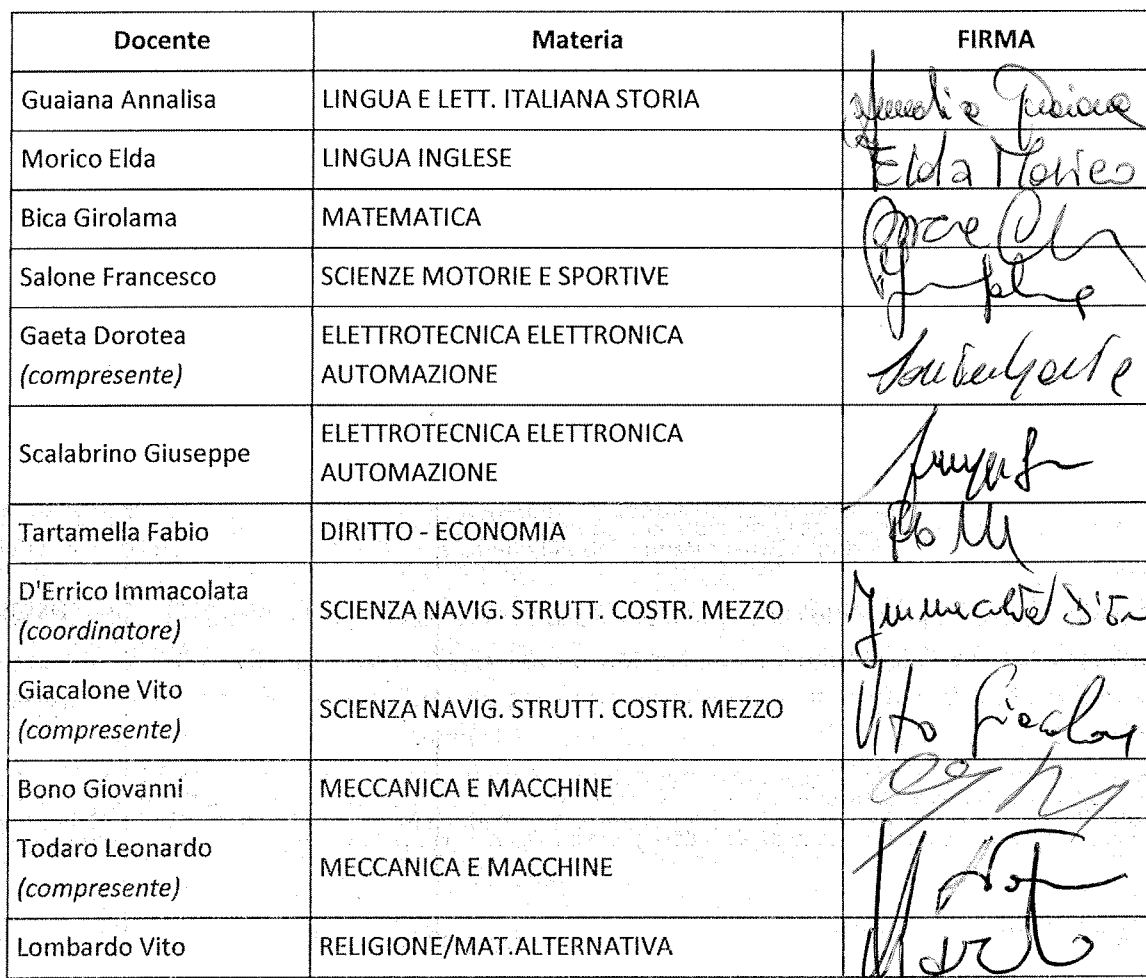 Docente Materia FIRMA
Guaiana Annalisa LINGUA E LETT. ITALIANA STORIA Guaiana
Morico Elda LINGUA INGLESE Elda Morico
Bica Girolama MATEMATICA
Salone Francesco SCIENZE MOTORIE E SPORTIVE
Gaeta Dorotea ELETTROTECNICA ELETTRONICA
(compresente) AUTOMAZIONE
Scalabrino Giuseppe ELETTROTECNICA ELETTRONICA
AUTOMAZIONE
Tartamella Fabio DIRITTO - ECONOMIA
D'Errico Immacolata
(coordinatore) SCIENZA NAVIG. STRUTT. COSTR. MEZZO Immacolata
Giacalone Vito
(compresente) SCIENZA NAVIG. STRUTT. COSTR. MEZZO Vito
Bono Giovanni MECCANICA E MACCHINE
Todaro Leonardo
(compresente) MECCANICA E MACCHINE
Lombardo Vito RELIGIONE/MAT.ALTERNATIVA